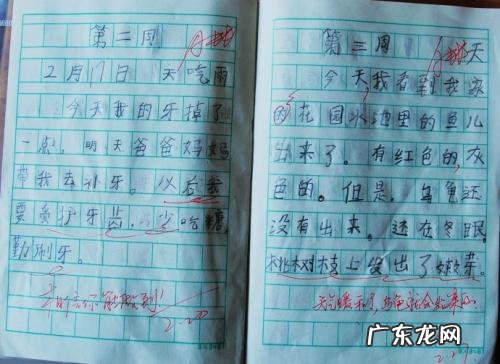 第二周
2月17日 天气雨
今天我的牙掉了
一点，明天爸爸妈妈
带我去补牙。以后我
要负护牙齿，少吃糖，
勤刷牙。
2.20
第三周
天
今天我看到我家
的花园水池里的鱼儿
出来了。有红色的，灰
色的。但是，乌龟还
没有出来。还在冬眠。
桃树枝上发出了嫩芽。
天气暖和了，乌龟就会出来
广东龙网